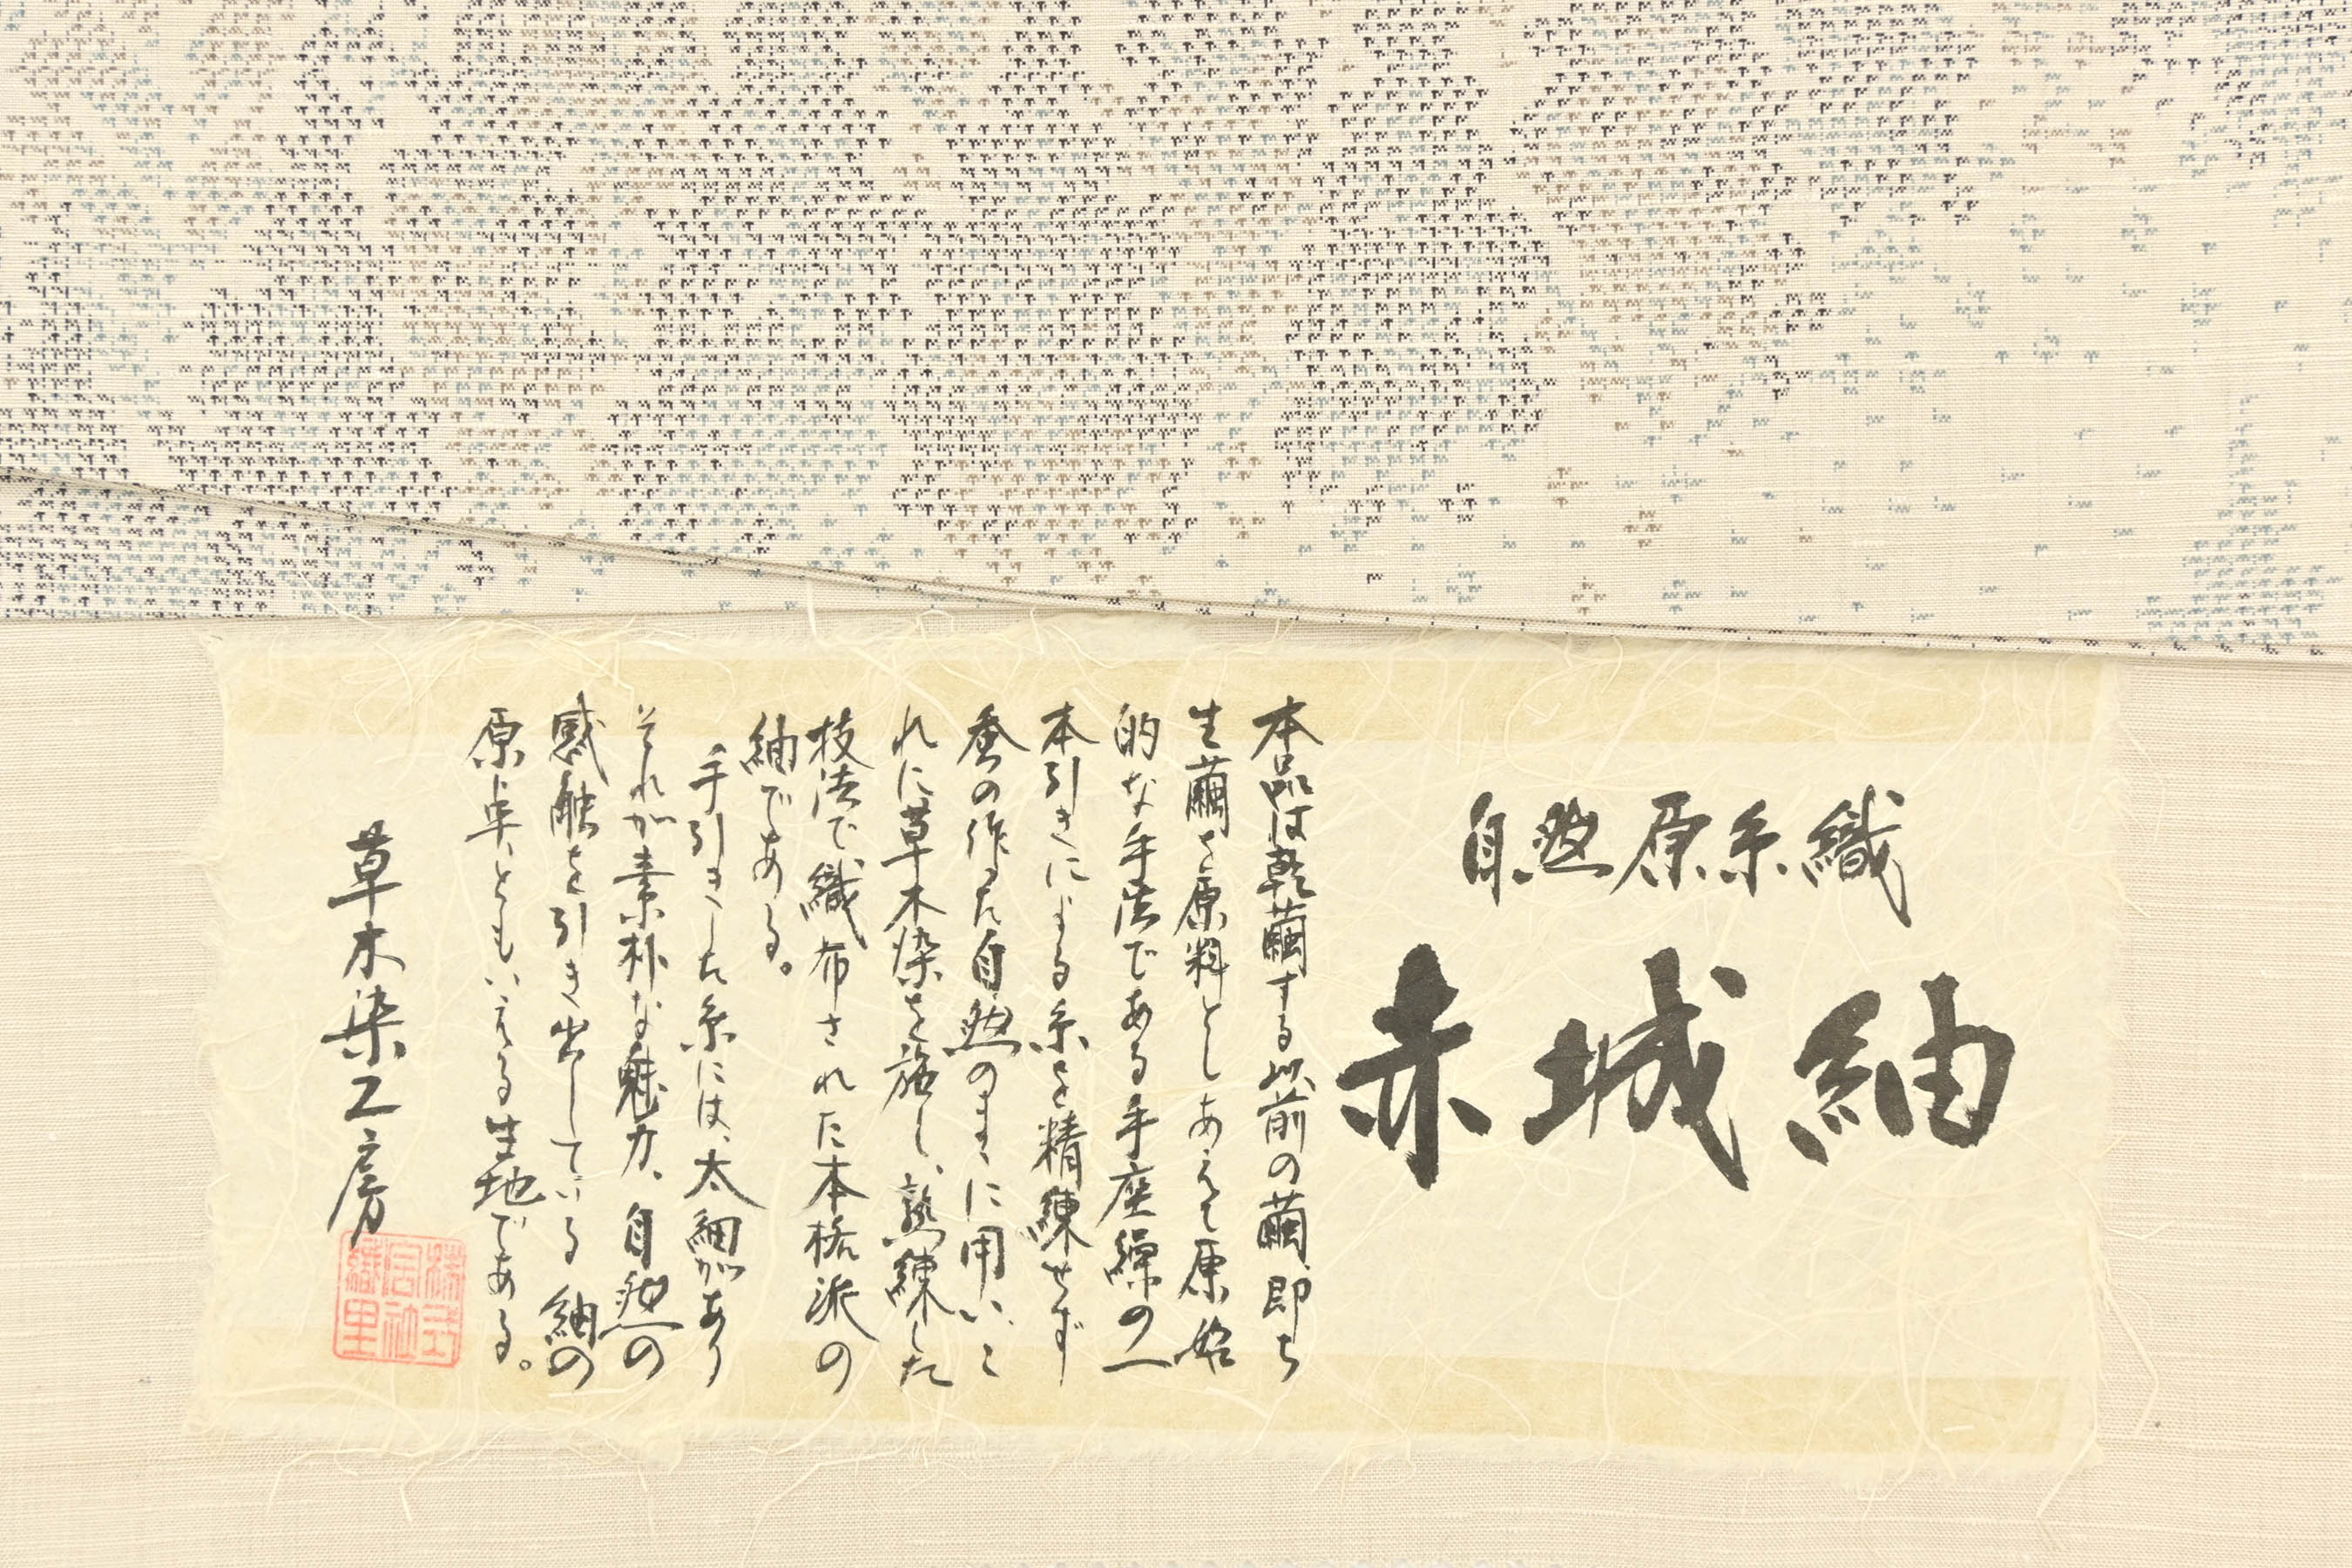 自然原糸織
赤城紬
本品は乾繭する以前の繭、即ち
生繭を原料としあえて原始
的な手法である手座繰の一
本引きによる糸を精練せず
蚕の作った自然のまゝに用い、こ
れに草木染を施し、熟練した
技法で織布された本格派の
紬である。
手引きした糸には、太細があり
それが素朴な魅力、自然の
感触を引き出している紬の
原点ともいえる生地である。
草木染工房
株式
会社
織里